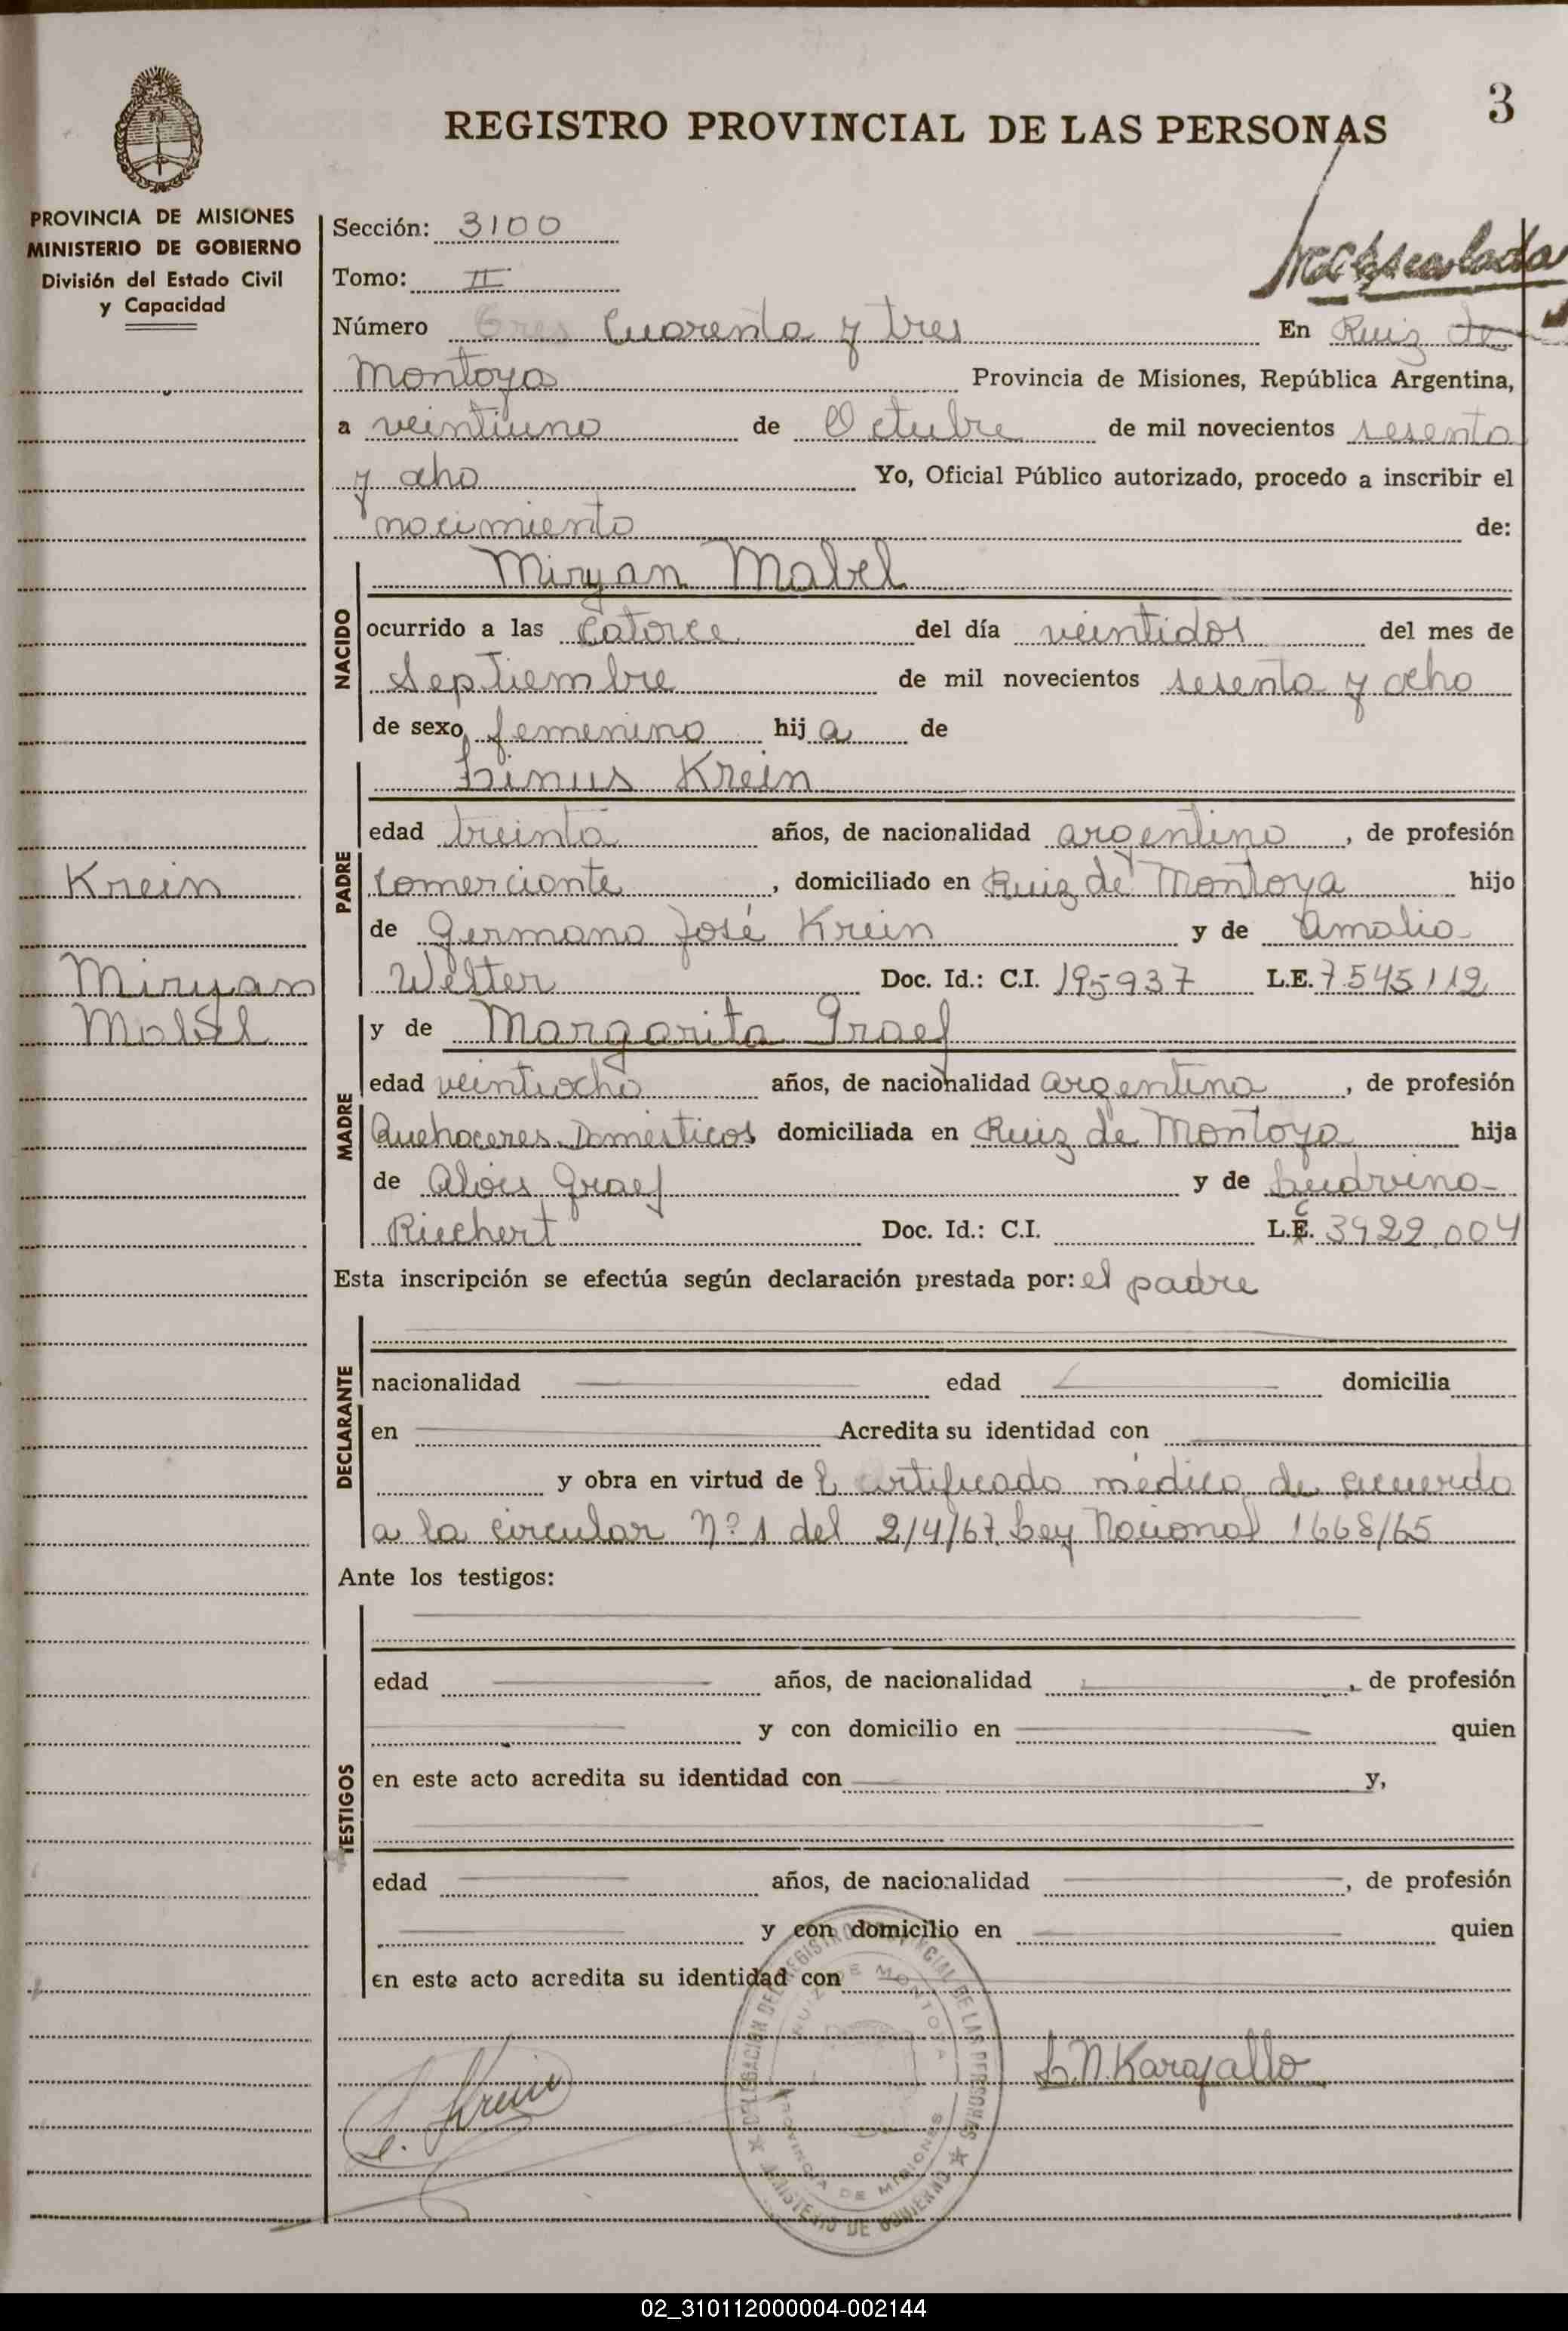 3
REGISTRO PROVINCIAL DE LAS PERSONAS
PROVINCIA DE MISIONES
MINISTERIO DE GOBIERNO
División del Estado Civil
y Capacidad
Sección: 3100
Tomo: II
Número Cuarenta y tres En Ruiz de
Montoya Provincia de Misiones, República Argentina,
a veintiuno de Octubre de mil novecientos sesenta
y ocho Yo, Oficial Público autorizado, procedo a inscribir el
nacimiento de:
NACIDO
Miryan Mabel
ocurrido a las Catorce del día veintidos del mes de
Septiembre de mil novecientos sesenta y ocho
de sexo femenino hija de
PADRE
Linus Krein
edad treinta años, de nacionalidad argentino, de profesión
Comerciante, domiciliado en Ruiz de Montoya hijo
de Germano José Krein y de Amalia
Welter Doc. Id.: C.I. 195937 L.E. 7.545.112
Krein
Miryan
Mabel
MADRE
y de Margarita Graef
edad veintiocho años, de nacionalidad argentina, de profesión
Quehaceres Domésticos domiciliada en Ruiz de Montoya hija
de Alois Graef y de Ludvina
Riechert Doc. Id.: C.I. L.C. 3.922.004
Esta inscripción se efectúa según declaración prestada por: el padre
DECLARANTE
nacionalidad edad domicilia
en Acredita su identidad con
y obra en virtud de certificado médico de acuerdo
a la circular Nº 1 del 2/4/67 Ley Nacional 1668/65
Ante los testigos:
TESTIGOS
edad años, de nacionalidad , de profesión
y con domicilio en quien
en este acto acredita su identidad con y,
edad años, de nacionalidad , de profesión
y con domicilio en quien
en este acto acredita su identidad con
L. Krein
L.N. Karajallo
DELEGACION DEL REGISTRO PROVINCIAL DE LAS PERSONAS
RUIZ DE MONTOYA
PROVINCIA DE MISIONES
MINISTERIO DE GOBIERNO
02_310112000004-002144